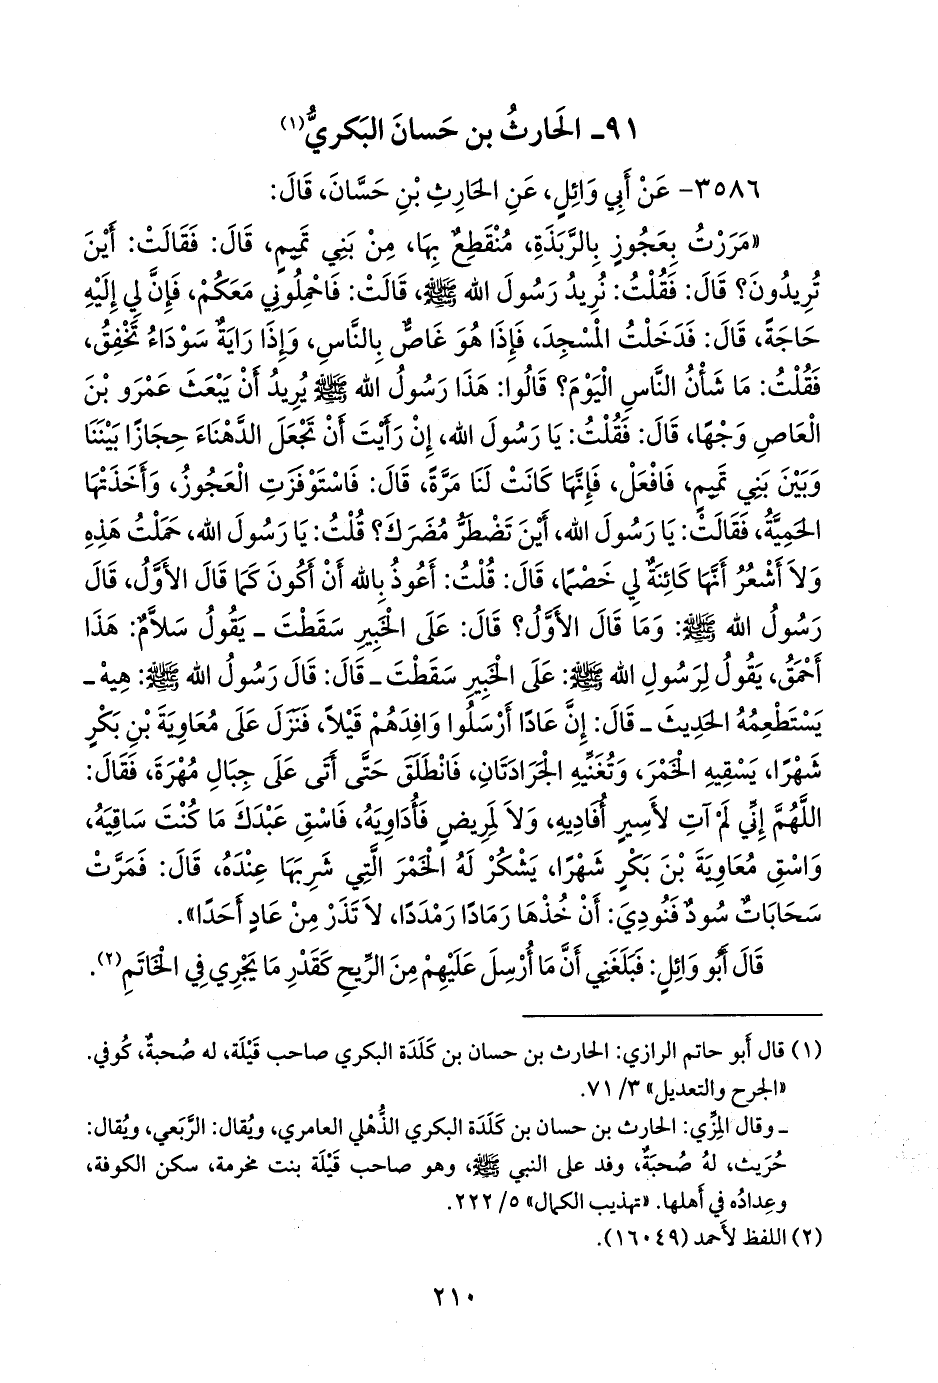 ٩١ـ الحَارثُ بن حَسانَ البَكريُّ(١)
٣٥٨٦- عَنْ أَبِي وَائِلٍ، عَنِ الحَارِثِ بْنِ حَسَّانَ، قَالَ:
«مَرَرْتُ بِعَجُوزٍ بِالرَّبَذَةِ، مُنْقَطِعٌ بِهَا، مِنْ بَنِي تَمِيمٍ، قَالَ: فَقَالَتْ: أَيْنَ
تُرِيدُونَ؟ قَالَ: فَقُلْتُ: نُرِيدُ رَسُولَ الله ﷺ، قَالَتْ: فَاحْمِلُونِي مَعَكُمْ، فَإِنَّ لِي إِلَيْهِ
حَاجَةً، قَالَ: فَدَخَلْتُ المَسْجِدَ، فَإِذَا هُوَ غَاصٌّ بِالنَّاسِ، وَإِذَا رَايَةٌ سَوْدَاءُ تَخْفِقُ،
فَقُلْتُ: مَا شَأْنُ النَّاسِ الْيَوْمَ؟ قَالُوا: هَذَا رَسُولُ الله ﷺ يُرِيدُ أَنْ يَبْعَثَ عَمْرَو بْنَ
الْعَاصِ وَجْهًا، قَالَ: فَقُلْتُ: يَا رَسُولَ الله، إِنْ رَأَيْتَ أَنْ تَجْعَلَ الدَّهْنَاءَ حِجَازًا بَيْنَنَا
وَبَيْنَ بَنِي تَمِيمٍ، فَافْعَلْ، فَإِنَّهَا كَانَتْ لَنَا مَرَّةً، قَالَ: فَاسْتَوْفَزَتِ الْعَجُوزُ، وَأَخَذَتْهَا
الحَمِيَّةُ، فَقَالَتْ: يَا رَسُولَ الله، أَيْنَ تَضْطَرُّ مُضَرَكَ؟ قُلْتُ: يَا رَسُولَ الله، حَمَلْتُ هَذِهِ
وَلاَ أَشْعُرُ أَنَّهَا كَائِنَةٌ لِي خَصْمًا، قَالَ: قُلْتُ: أَعُوذُ بِالله أَنْ أَكُونَ كَمَا قَالَ الأَوَّلُ، قَالَ
رَسُولُ الله ﷺ: وَمَا قَالَ الأَوَّلُ؟ قَالَ: عَلَى الخَبِيرِ سَقَطْتَ ـ يَقُولُ سَلاَّمٌ: هَذَا
أَحْمَقُ، يَقُولُ لِرَسُولِ الله ﷺ: عَلَى الخَبِيرِ سَقَطْتَ ـ قَالَ: قَالَ رَسُولُ الله ﷺ: هِيهْ ـ
يَسْتَطْعِمُهُ الحَدِيثَ ـ قَالَ: إِنَّ عَادًا أَرْسَلُوا وَافِدَهُمْ قَيْلاً، فَنَزَلَ عَلَى مُعَاوِيَةَ بْنِ بَكْرٍ
شَهْرًا، يَسْقِيهِ الخَمْرَ، وَتُغَنِّيهِ الجَرَادَتَانِ، فَانْطَلَقَ حَتَّى أَتَى عَلَى جِبَالِ مُهْرَةَ، فَقَالَ:
اللَّهُمَّ إِنِّي لَمْ آتِ لأَسِيرٍ أُفَادِيهِ، وَلاَ لِمَرِيضٍ فَأُدَاوِيَهُ، فَاسْقِ عَبْدَكَ مَا كُنْتَ سَاقِيَهُ،
وَاسْقِ مُعَاوِيَةَ بْنَ بَكْرٍ شَهْرًا، يَشْكُرْ لَهُ الخَمْرَ الَّتِي شَرِبَهَا عِنْدَهُ، قَالَ: فَمَرَّتْ
سَحَابَاتٌ سُودٌ فَنُودِيَ: أَنْ خُذْهَا رَمَادًا رَمْدَدًا، لاَ تَذَرْ مِنْ عَادٍ أَحَدًا».
قَالَ أَبُو وَائِلٍ: فَبَلَغَنِي أَنَّ مَا أُرْسِلَ عَلَيْهِمْ مِنَ الرِّيحِ كَقَدْرِ مَا يَجْرِي فِي الخَاتَمِ(٢).
(١) قال أَبو حاتم الرازي: الحارث بن حسان بن كَلَدَة البكري صاحب قَيْلَة، له صُحبةٌ، كُوفي.
«الجرح والتعديل» ٣/ ٧١.
ـ وقال المِزِّي: الحارث بن حسان بن كَلَدَة البكري الذُّهْلي العامري، ويُقال: الرَّبَعي، ويُقال:
حُرَيث، لهُ صُحبَةٌ، وفد على النبي ﷺ، وهو صاحب قَيْلَة بنت مخرمة، سكن الكوفة،
وعِدادُه في أَهلها. «تهذيب الكمال» ٥/ ٢٢٢.
(٢) اللفظ لأَحمد (١٦٠٤٩).
٢١٠